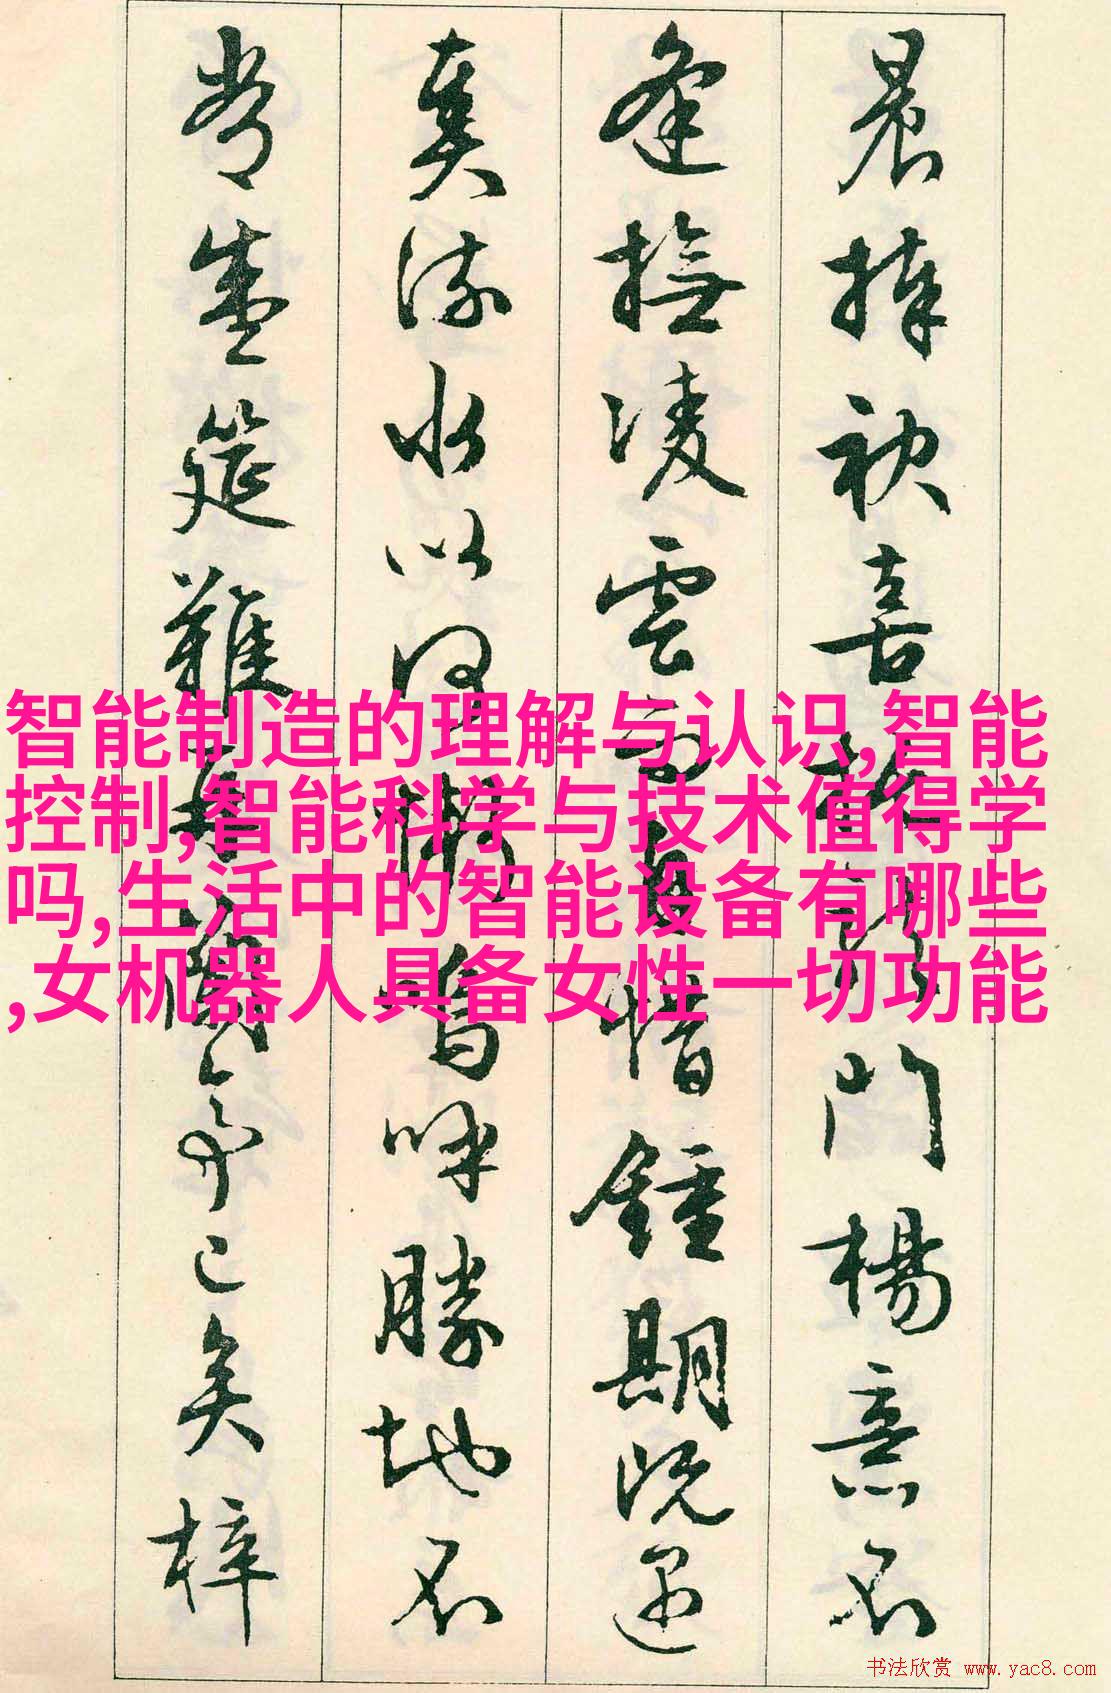 晨捧袂喜托龍門楊意不
逢撫淩雲而自惜鍾期既遇
奏流水以何慚嗚呼勝地不
常盛筵難再蘭亭已矣梓
智能制造的理解与认识,智能
控制,智能科学与技术值得学
吗,生活中的智能设备有哪些
,女机器人具备女性一切功能
书法欣赏 www.yac8.com